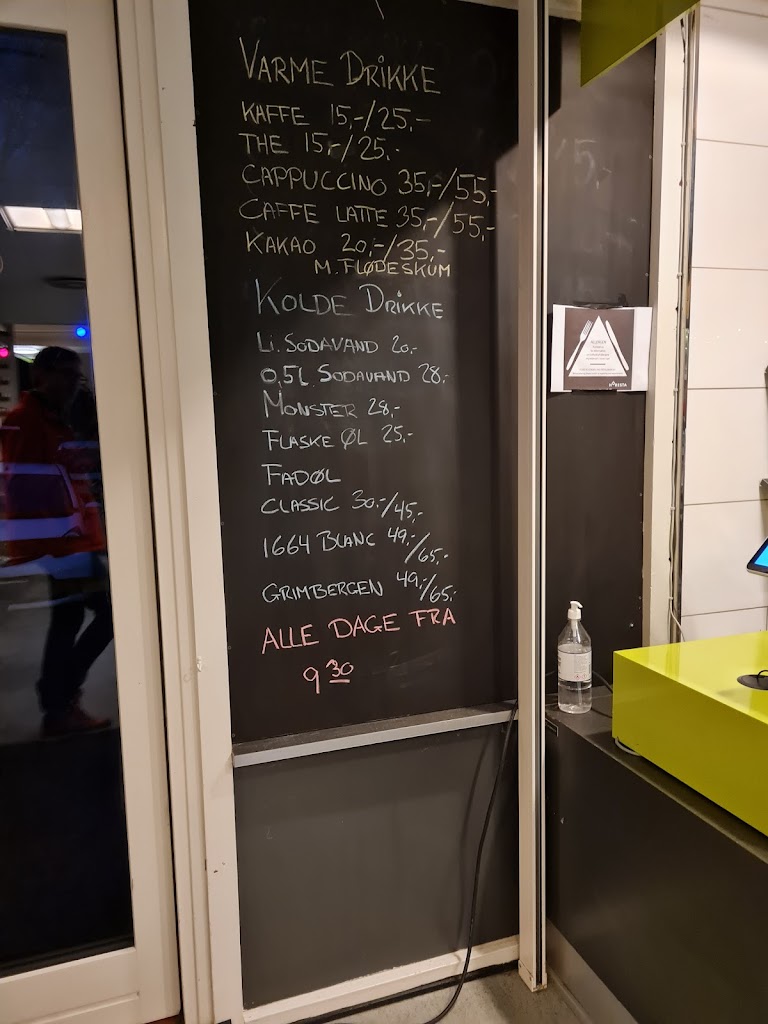 VARME DRIKKE
KAFFE 15,-/25,-
THE 15,-/25,-
CAPPUCCINO 35,-/55,-
CAFFE LATTE 35,-/55,-
KAKAO 20,-/35,-
M. FLØDESKUM
KOLDE DRIKKE
LI. SODAVAND 20,-
0,5L SODAVAND 28,-
MONSTER 28,-
FLASKE ØL 25,-
FADØL
CLASSIC 30,-/45,-
1664 BLANC 49,-/65,-
GRIMBERGEN 49,-/65,-
ALLE DAGE FRA
9 30